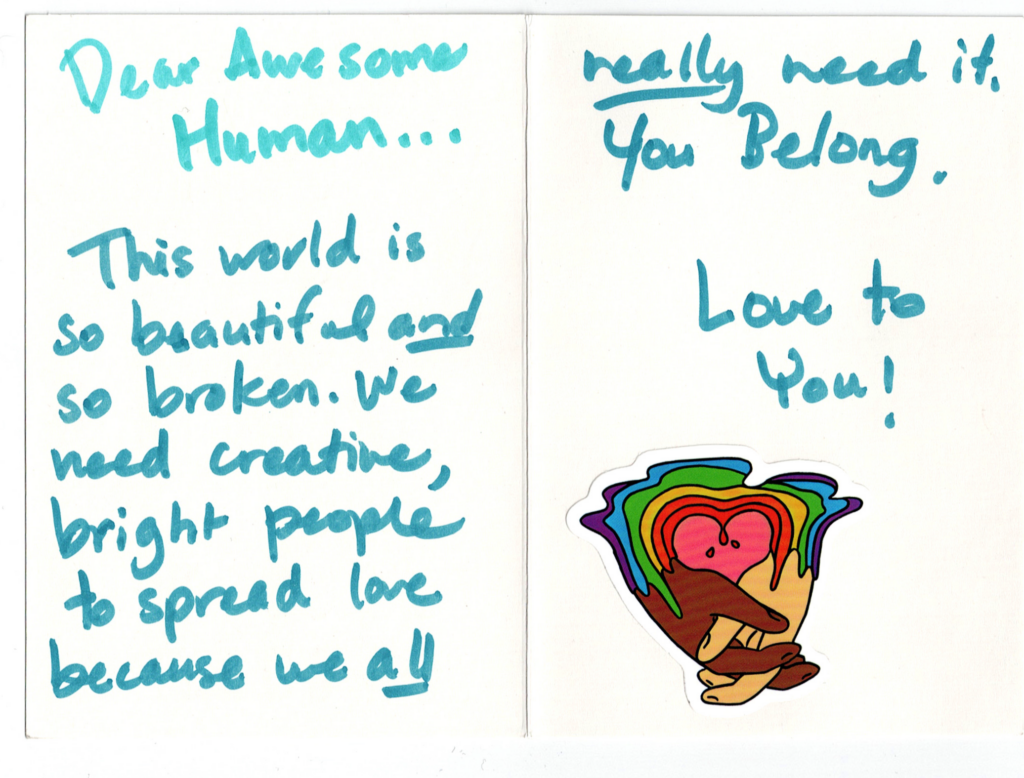 Dear Awesome
Human...
This world is
so beautiful and
so broken. We
need creative,
bright people
to spread love
because we all
really need it.
You Belong.
Love to
You!